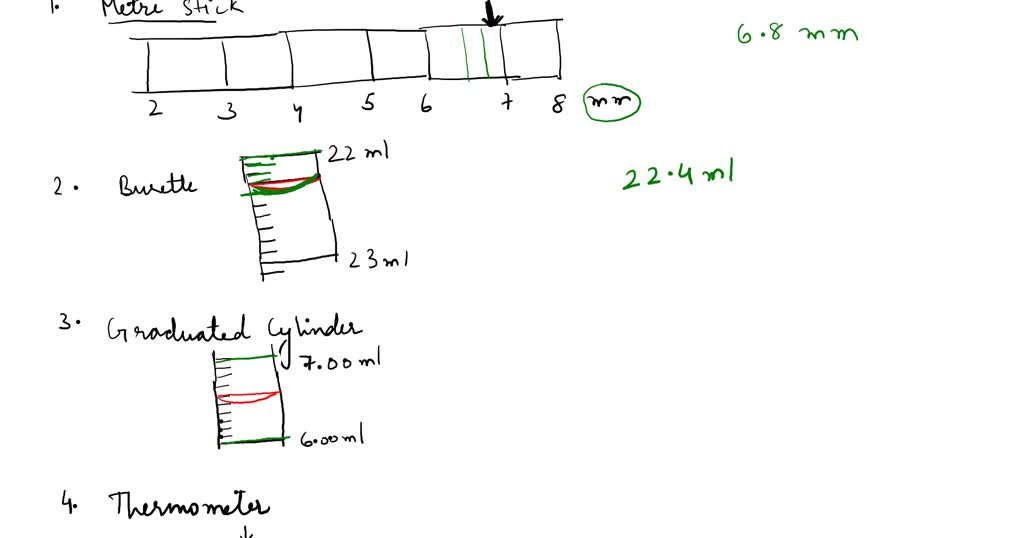 1. Metre Stick
6.8 mm
2 3 4 5 6 7 8 mm
22 ml
2. Burette
22.4 ml
23 ml
3. Graduated Cylinder
7.00 ml
6.00 ml
4. Thermometer